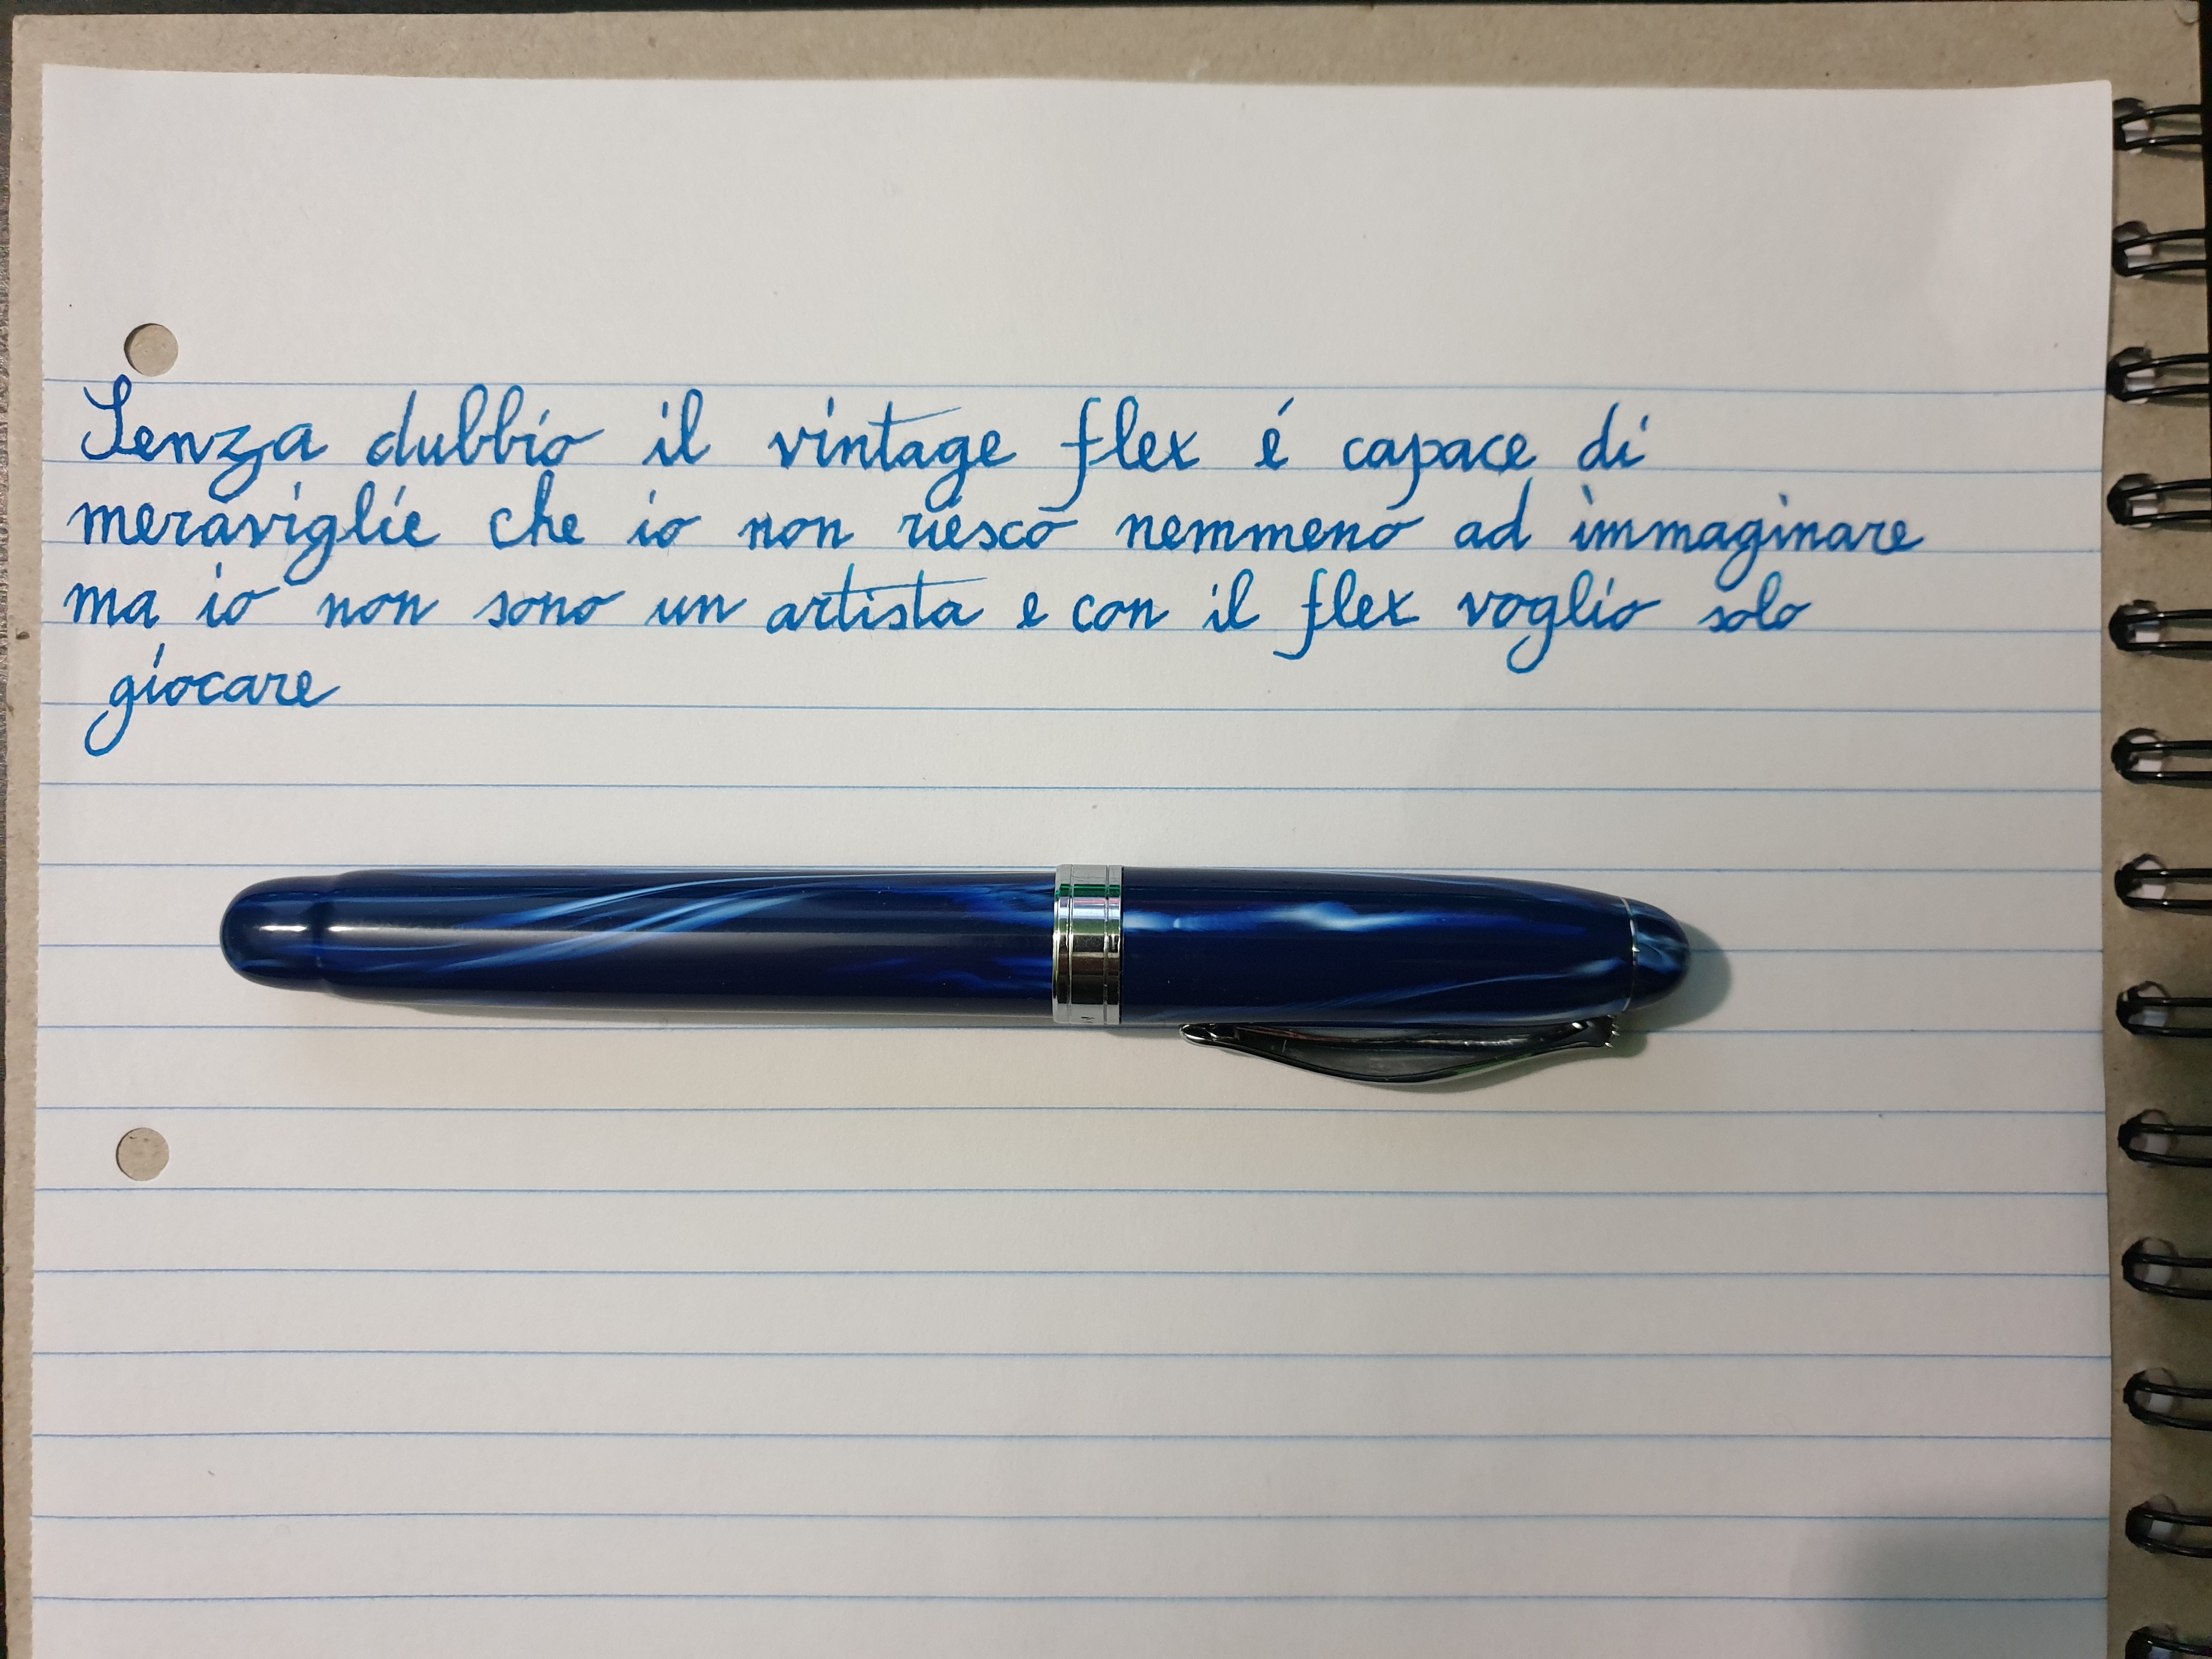 Senza dubbio il vintage flex é capace di
meraviglie che io non riesco nemmeno ad immaginare
ma io non sono un artista e con il flex voglio solo
giocare